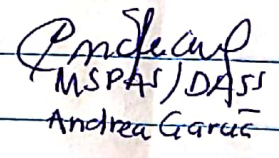 MSPAS/DASS
Andrea García